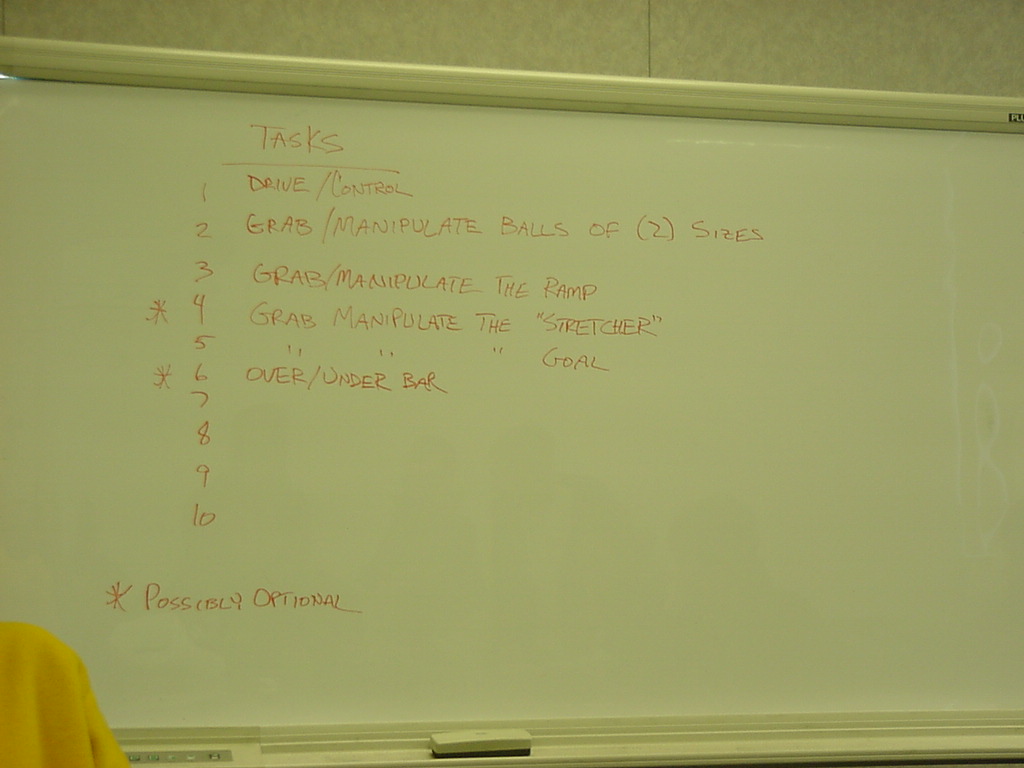 TASKS
1 DRIVE/CONTROL
2 GRAB/MANIPULATE BALLS OF (2) SIZES
3 GRAB/MANIPULATE THE RAMP
* 4 GRAB MANIPULATE THE "STRETCHER"
5 " " " GOAL
* 6 OVER/UNDER BAR
7
8
9
10
* POSSIBLY OPTIONAL